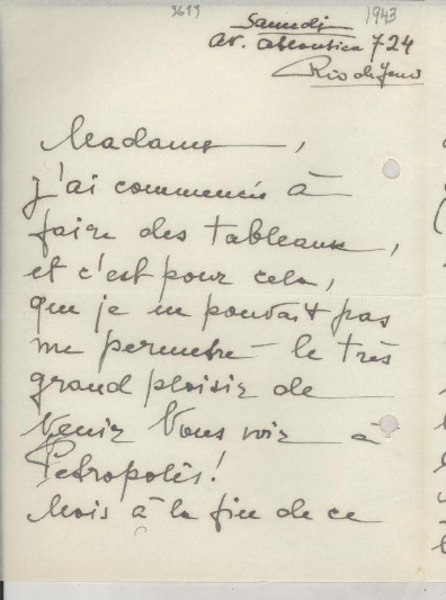 3619
1943
Samedi
av. atlantica 724
Rio de Janeiro
Madame,
j'ai commencé à
faire des tableaux,
et c'est pour cela,
que je ne pouvait pas
me permetre le très
grand plaisir de
Venir Vous voir à
Petropolis!
Mais à la fin de ce